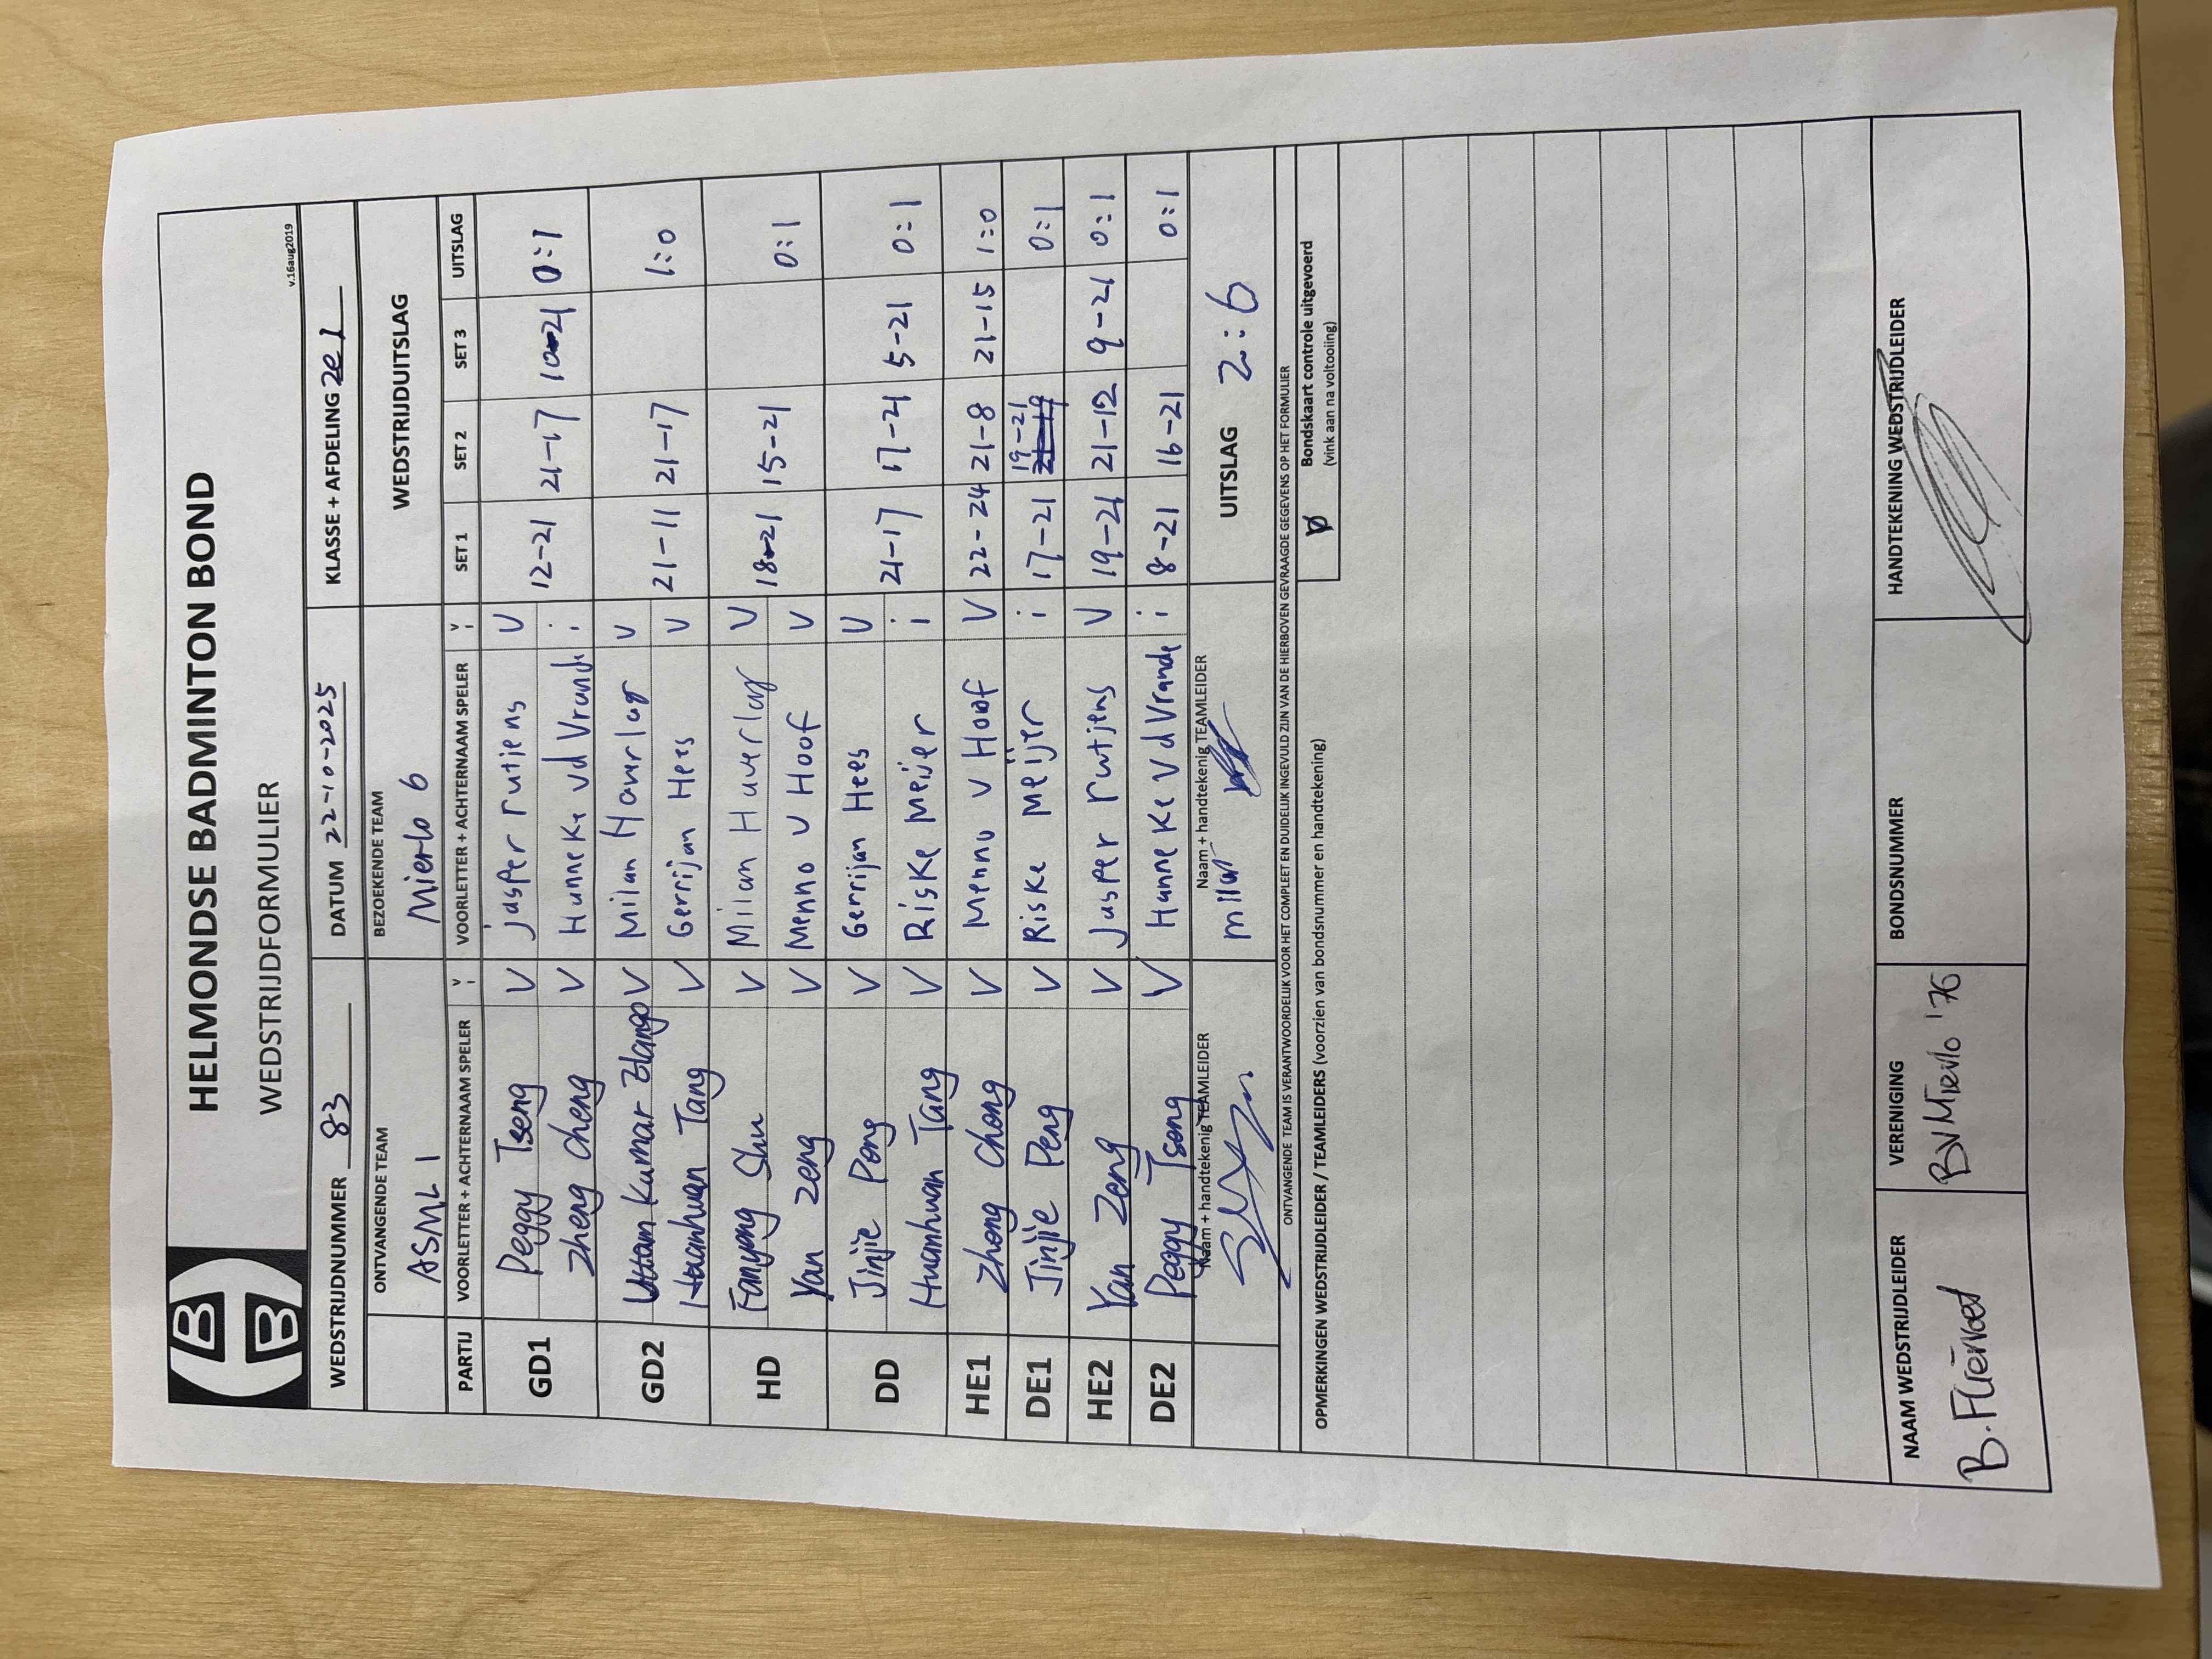 HELMONDSE BADMINTON BOND
WEDSTRIJDFORMULIER
v.16aug2019
WEDSTRIJDNUMMER 83 DATUM 22-10-2025 KLASSE + AFDELING 2e1
ONTVANGENDE TEAM BEZOEKENDE TEAM WEDSTRIJDUITSLAG
ASML 1 Mierlo 6
PARTIJ VOORLETTER + ACHTERNAAM SPELER V i VOORLETTER + ACHTERNAAM SPELER V i SET 1 SET 2 SET 3 UITSLAG
GD1 Peggy Tseng V jasper rutjens V 12-21 21-17 10-21 0:1
Zheng Cheng V Hanneke vd Vrande i
GD2 Uttam Kumar Elango V Milan Haverlag V 21-11 21-17 1:0
Huanhuan Tang V Gerrijan Hees V
HD Fanyong Shu V Milan Haverlag V 18-21 15-21 0:1
Yan Zeng V Menno v Hoof V
DD Jinjie Peng V Gerrijan Hees V 21-17 17-21 5-21 0:1
Huanhuan Tang V Riske Meijer i
HE1 Zhong Cheng V Menno v Hoof V 22-24 21-8 21-15 1:0
DE1 Jinjie Peng V Riske Meijer i 17-21 19-21 0:1
HE2 Yan Zeng V Jasper rutjens V 19-21 21-12 9-21 0:1
DE2 Peggy Tseng V Hanneke vd Vrande i 8-21 16-21 0:1
Naam + handtekenig TEAMLEIDER Naam + handtekenig TEAMLEIDER UITSLAG 2:6
milan
ONTVANGENDE TEAM IS VERANTWOORDELIJK VOOR HET COMPLEET EN DUIDELIJK INGEVULD ZIJN VAN DE HIERBOVEN GEVRAAGDE GEGEVENS OP HET FORMULIER
OPMERKINGEN WEDSTRIJDLEIDER / TEAMLEIDERS (voorzien van bondsnummer en handtekening) Bondskaart controle uitgevoerd
(vink aan na voltooiing)
NAAM WEDSTRIJDLEIDER VERENIGING BONDSNUMMER HANDTEKENING WEDSTRIJDLEIDER
B. Fliervoet BV Mierlo '76